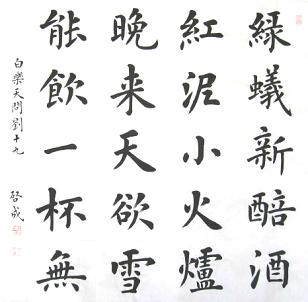 綠蟻新醅酒
紅泥小火爐
晚来天欲雪
能飲一杯無
白樂天問劉十九
啓成